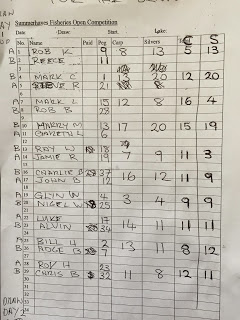 DAY 1
Summerhaves Fisheries Open Competition
Date: Venue: Start: Lake:
No. Name Paid Peg Carp Silvers C S
A 1 ROB K 8 8 13 5 13
B 2 REECE 11
B 4 MARK C 1 3 20 12 20
A 5 STEVE R 21
A 7 MARK L 15 12 8 16 4
B 8 ROB B 28
B 10 HARRY M 13 17 20 15 19
A 11 GARETH L 6
B 13 RAY W 18 7 9 11 3
A 14 JAMIE R 19
B 16 CHARLIE B 37 16 12 11 9
A 17 JOHN B 12
A 19 GLYN W 4 3 4 9 9
B 20 NIGEL W 25
A 22 LUKE 17 14 11 11 11
B 23 ALVIN 34
A 25 BILL H 2 13 11 8 12
B 26 ADGE B 7
A 28 ROY H 23 11 8 12 11
B 29 CHRIS B 32
DRAW
DAY 2